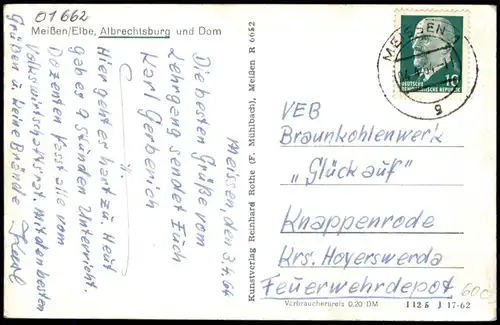 01662
Meißen/Elbe, Albrechtsburg und Dom
Meissen, den 3.4.64
Die besten Grüße vom
Lehrgang sendet Euch
Karl Gerberich
Hier geht es hart zu. Heut
gab es 9 Stunden Unterricht.
Dozenten fast alle vom
Volkswirtschaftsrat. Mit den besten
Grüßen u. keine Brände
Karl
Kunstverlag Reinhard Rothe (F. Mühlbach), Meißen R 6652
MEISSEN
10
DEUTSCHE
DEMOKRATISCHE REPUBLIK
VEB
Braunkohlenwerk
„Glückauf"
Knappenrode
Krs. Hoyerswerda
Feuerwehrdepot
Verbraucherpreis 0.20 DM
I 12 5 J 17-62